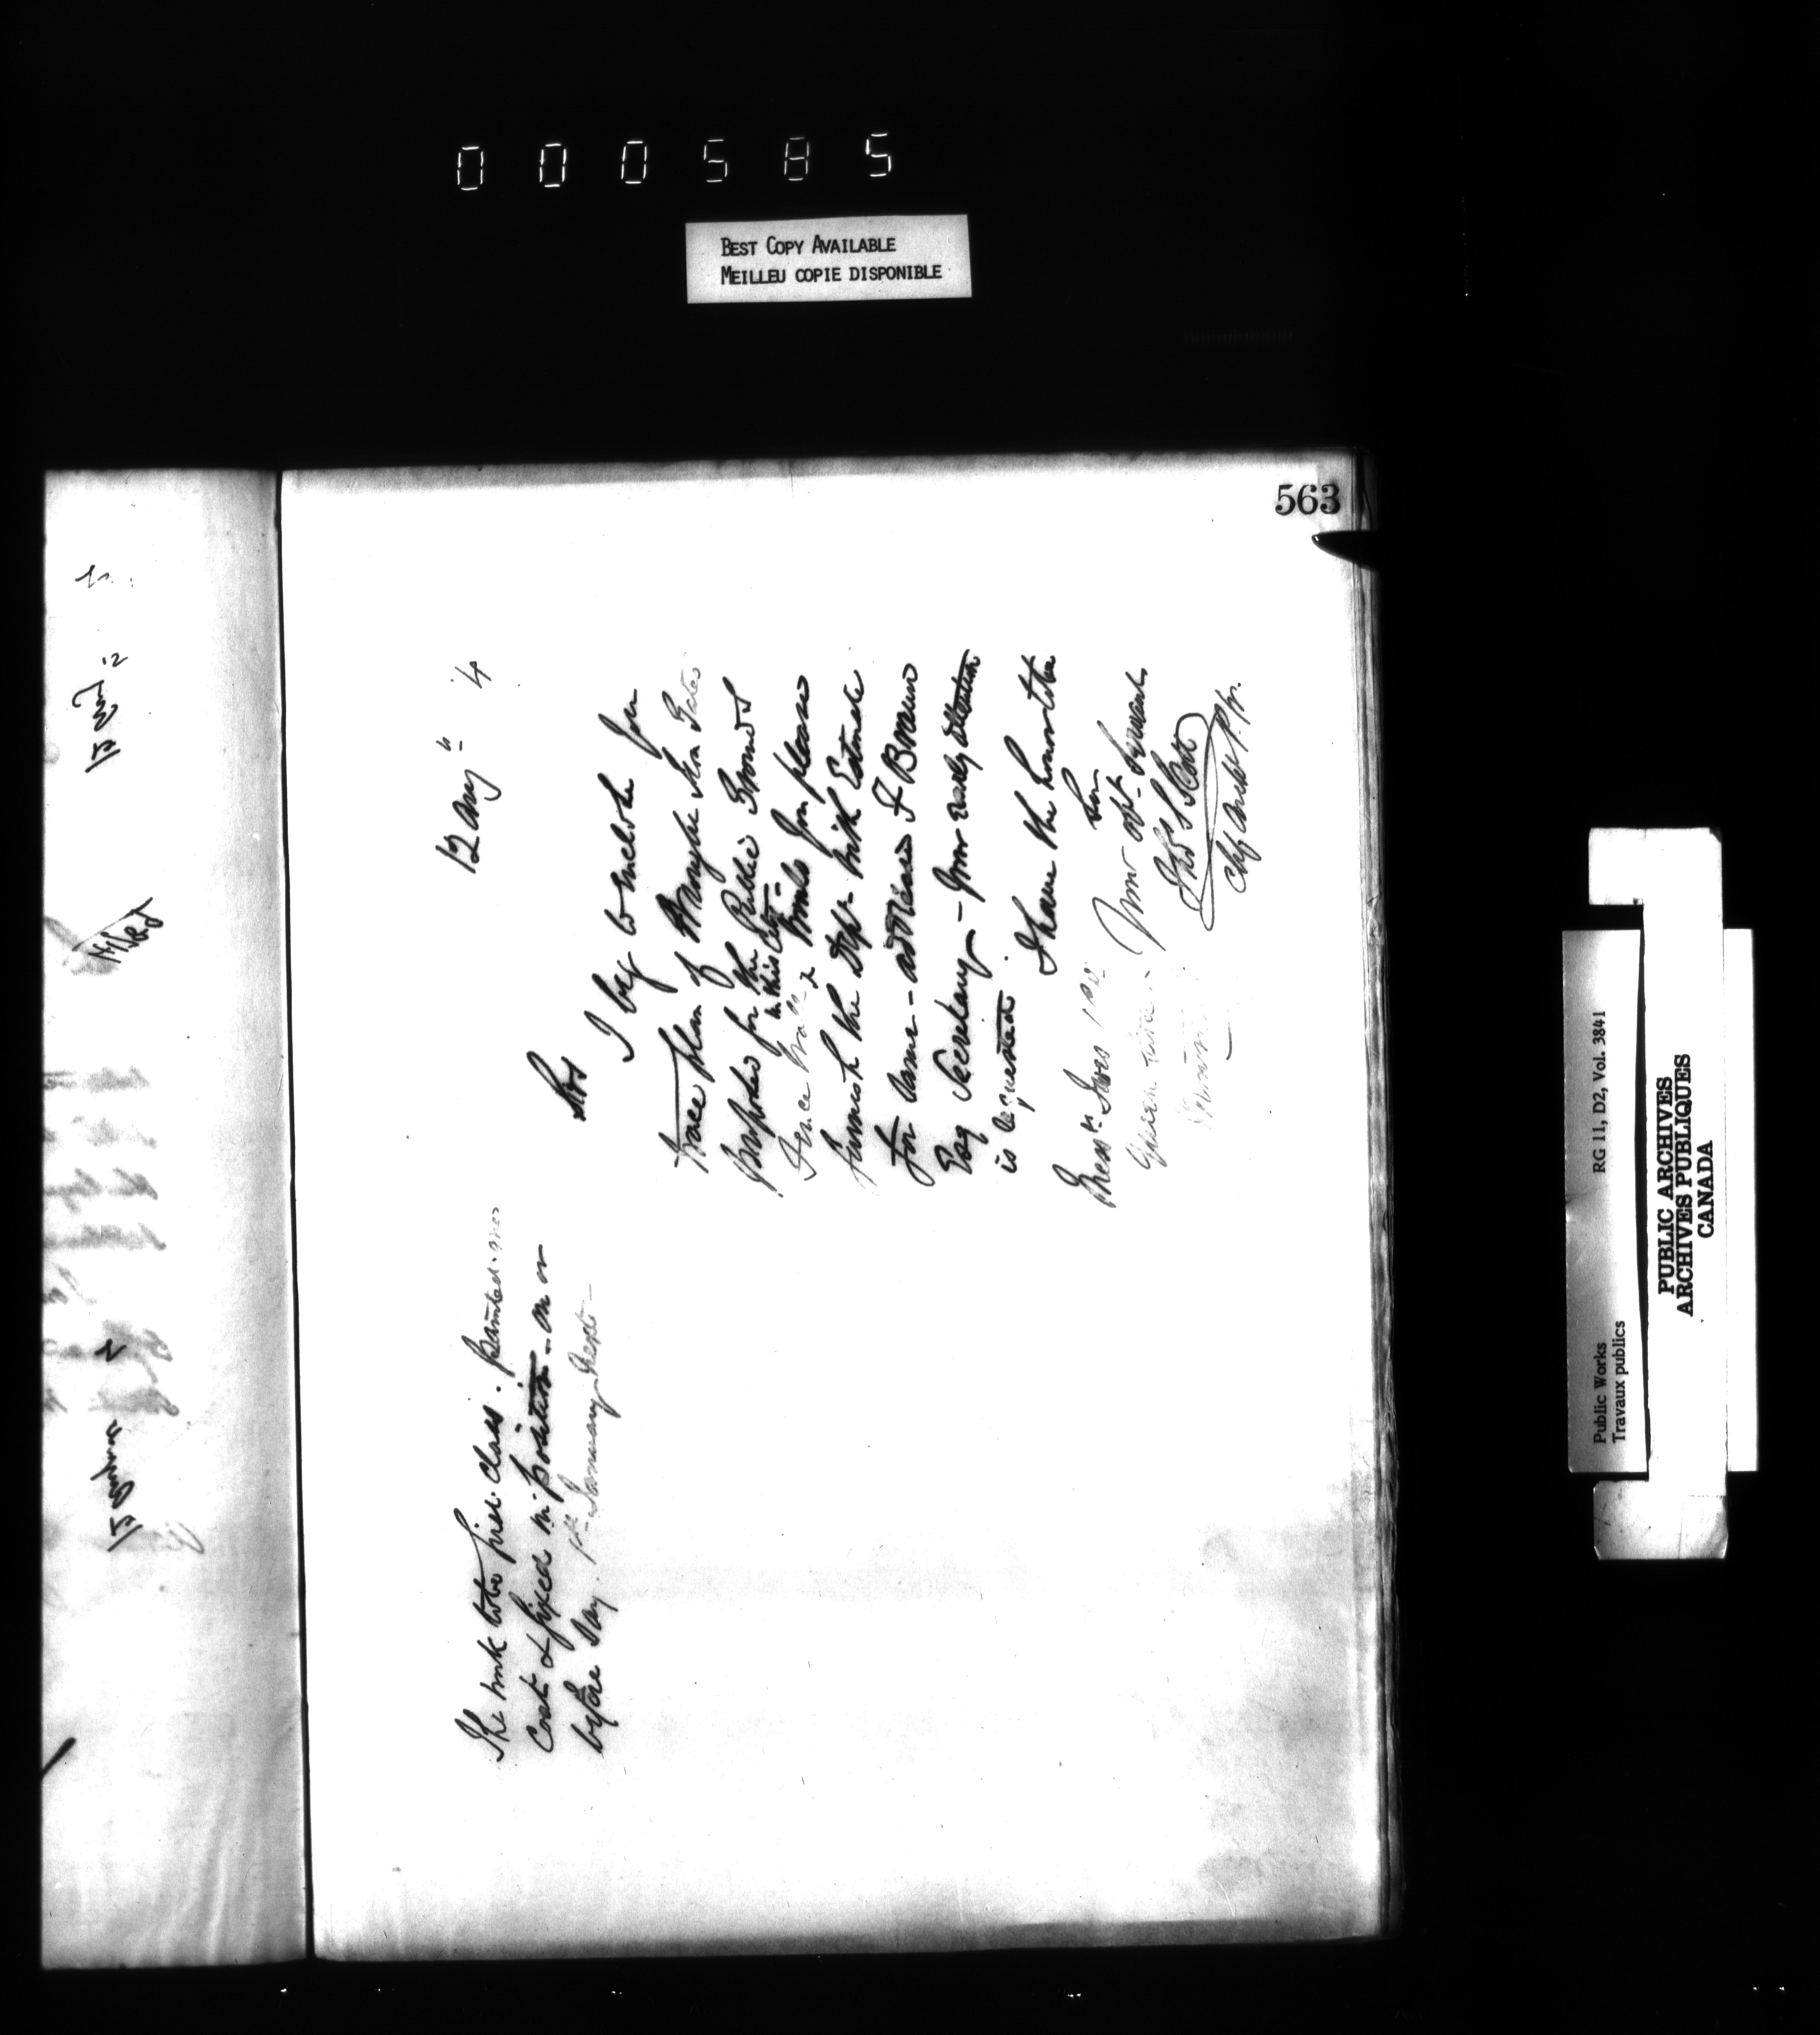 000585
BEST COPY AVAILABLE
MEILLEU COPIE DISPONIBLE
563
12 Aug 4
Sirs
I beg to enclose you
trace plan of Iron Gates
proposed for the Public Grounds
in this City -
Fence Would you please
furnish the Dept with Estimate
for same - addressed F Braun
Esq Secretary - Your early attention
is requested
I have the honor to be
Sirs
Your obt Servant
Thos S Scott
Chf Archt P.W.
Messrs Ives & Co
Queen
The work to be first class. painted one
Coat & fixed in position - on or
before say 1st January Next -
Public Works
Travaux publics
RG 11, D2, Vol. 3841
PUBLIC ARCHIVES
ARCHIVES PUBLIQUES
CANADA